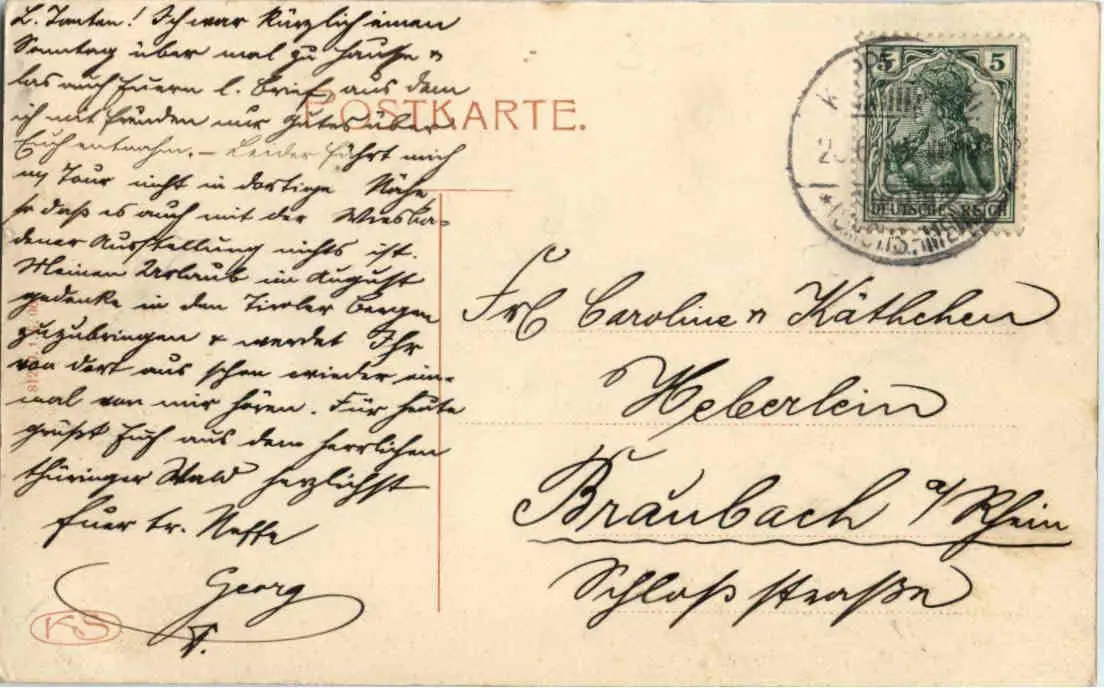 L. Tanten! Ich war kürzlich einen
Sonntag über mal zu Hause &
las auch Euern l. Brief, aus dem
ich mit Freuden nur Gutes über
Euch entnahm. – Leider führt mich
m/ Tour nicht in dortige Nähe
so daß es auch mit der Wiesba-
dener Ausstellung nichts ist.
Meinen Urlaub im August
gedenke in den Tiroler Bergen
zuzubringen & werdet Ihr
von dort aus schon wieder ein-
mal von mir hören. Für heute
grüßt Euch aus dem herrlichen
Thüringer Wald herzlichst
Euer tr. Neffe
Georg
POSTKARTE.
5 5
DEUTSCHES REICH
Frl. Caroline & Käthchen
Heberlein
Braubach a/Rhein
Schloßstraße
KS